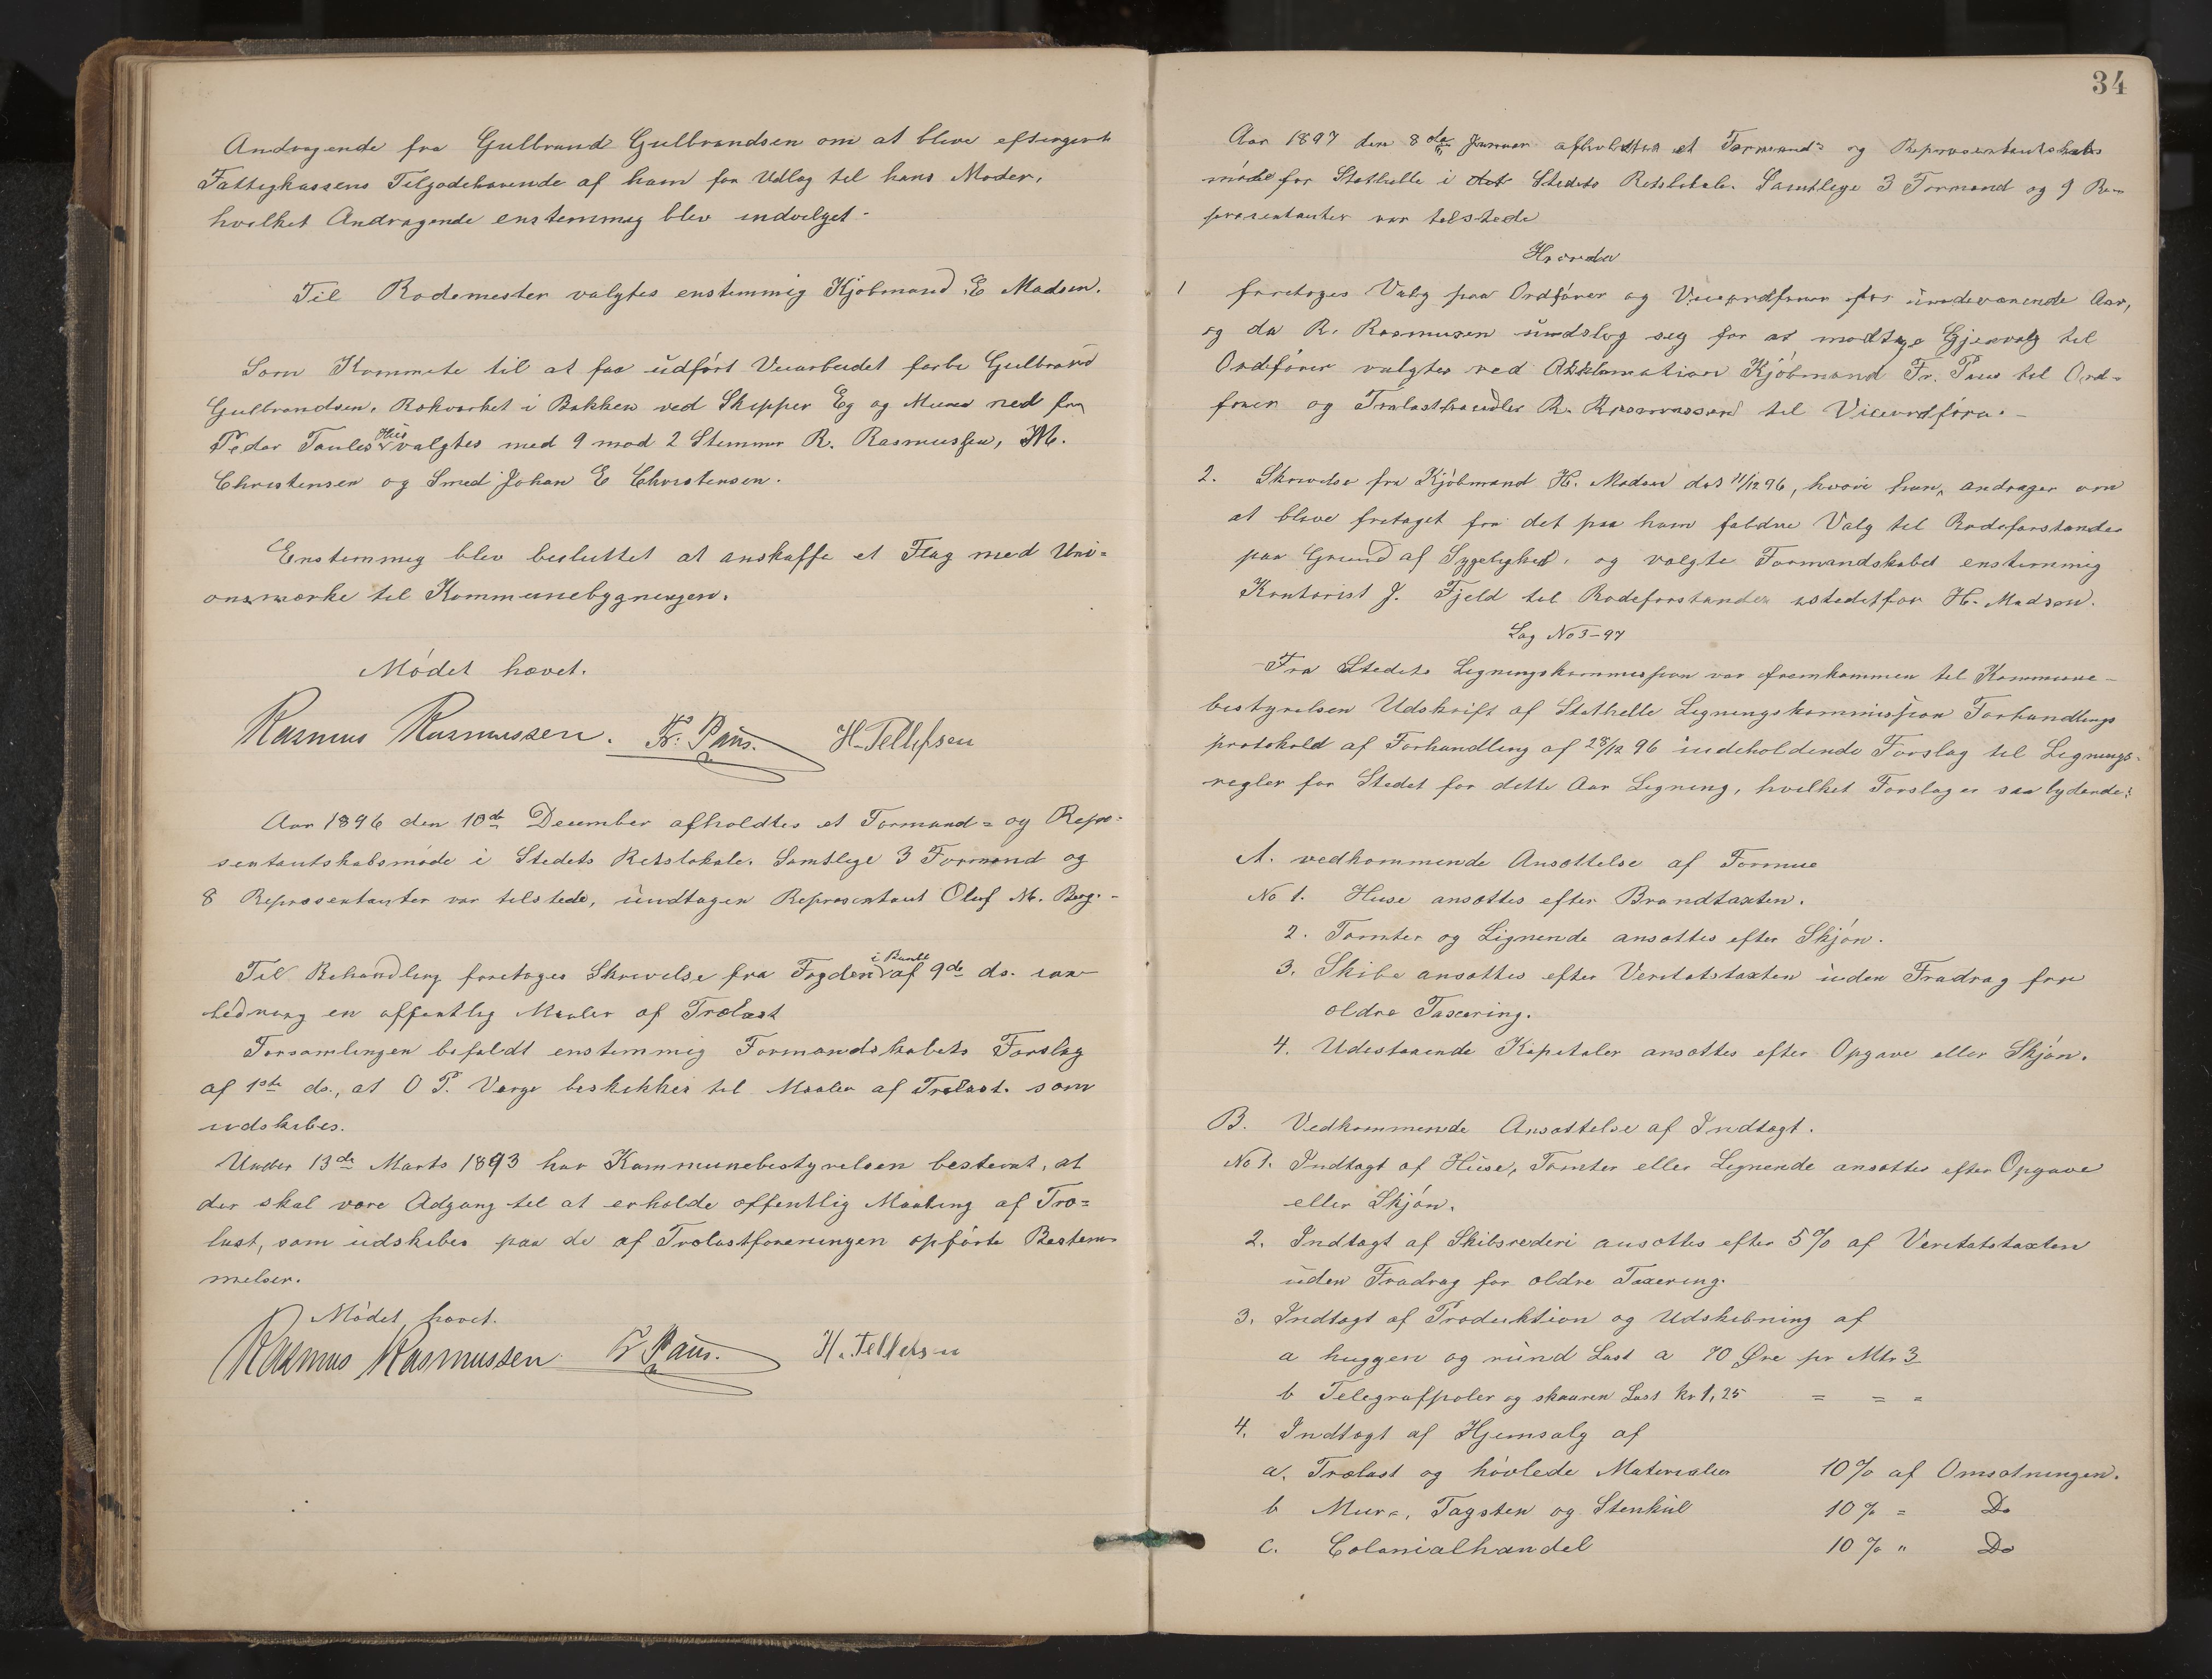 Andragende fra Gulbrand Gulbrandsen om at blive eftergivet
Fattigkassens Tilgodehavende af ham for Udlæg til hans Moder,
hvilket Andragende enstemmig blev indvilget.
Til Rodemester valgtes enstemmig Kjøbmand E Madsen.
Som Kommite til at faa udført Veiarbeidet forbi Gulbrand
Gulbrandsen, Rækværket i Bakken ved Skipper Eg og Muren ned fra
Peder Paules Hus valgtes med 9 mod 2 Stemmer R. Rasmussen, M.
Christensen og Smed Johan E Christensen.
Enstemmig blev besluttet at anskaffe et Flag med Uni=
onsmærke til Kommunebygningen.
Mødet hævet.
Rasmus Rasmussen. Fr. Paus. H. Tellefsen
Aar 1896 den 10de December afholdtes et Formand= og Repræ=
sentantskabsmøde i Stedets Retslokale. Samtlige 3 Formænd og
8 Repræsentanter var tilstede, undtagen Repræsentant Oluf M. Berg.-
Til Behandling foretoges Skrivelse fra Fogden i Bamble af 9de ds. an
ledning en offentlig Maaler af Trælast
Forsamlingen bifaldt enstemmig Formandskabets Forslag
af 1ste ds., at O P. Verge beskikkes til Maaler af Trælast. som
udskibes.
Under 13de Marts 1893 har Kommunebestyrelsen bestemt, at
der skal være Adgang til at erholde offentlig Maaling af Træ=
last, som udskibes paa de af Trælastforeningen opførte Bestem
melser.
Mødet hævet.
Rasmus Rasmussen Fr Paus. H. Tellefsen
34
Aar 1897 den 8de Januar afholdtes et Formands og Repræsentantskabs
møde for Stathelle i det Stedets Retslokale. Samtlige 3 Formænd og 9 Re-
præsentanter var tilstede
Hvorda
1 foretoges Valg paa Ordfører og Viceordfører for inndeværende Aar,
og da R. Rasmusen undslog seg for at modtage Gjenvalg til
Ordefører valgtes ved Akklamation Kjøbmand Fr. Paus til Ord-
fører og Trælasthandler R. Rasmussen til Viceordføre.-
2. Skrivelse fra Kjøbmand H. Madsen dat 11/12 96, hvori han, andrager om
at blive fritaget fra det paa ham faldne Valg til Rodeforstander
paa Grund af Sygelighed, og valgte Formandskabet enstemmig
Kontorist J. Fjeld til Rodeforstander istedetfor H. Madsen.
Sag No 3-97
Fra Stedets Ligningskommission var fremkommen til Kommune-
bestyrelsen Udskrift af Stathelle Ligningskommission Forhandlings
protokold af Forhandling af 28/12 96 indeholdende Forslag til Lignings-
regler for Stedet for dette Aar Ligning, hvilket Forslag er saa lydende:
A. vedkommende Ansættelse af Formue
No 1. Huse ansættes efter Brandtaxten.
2. Tomter og Lignende ansættes efter Skjøn.
3. Skibe ansættes efter Veritatstaxten uden Fradrag for
ældre Taxering.
4. Udestaaende Kapitaler ansættes efter Opgave eller Skjøn.
B. Vedkommende Ansættelse af Indtægt.
No 1. Indtægt af Huse, Tomter eller Lignende ansættes efter Opgave
eller Skjøn.
2. Indtægt af Skibsrederi ansættes efter 5% af Veritatstaxten
uden Fradrag for ældre Taxering.
3. Indtægt af Produktion og Udskibning af
a huggen og rund Last a 70 Øre pr Mtr 3
b Telegrafpæler og skaaren Last kr 1,25 = = =
4. Indtægt af Hjemsalg af
a. Trælast og høvlede Materialer 10% af Omsætningen.
b Mur=, Tagsten og Stenkul 10% = Do
c. Colonialhandel 10% " Do